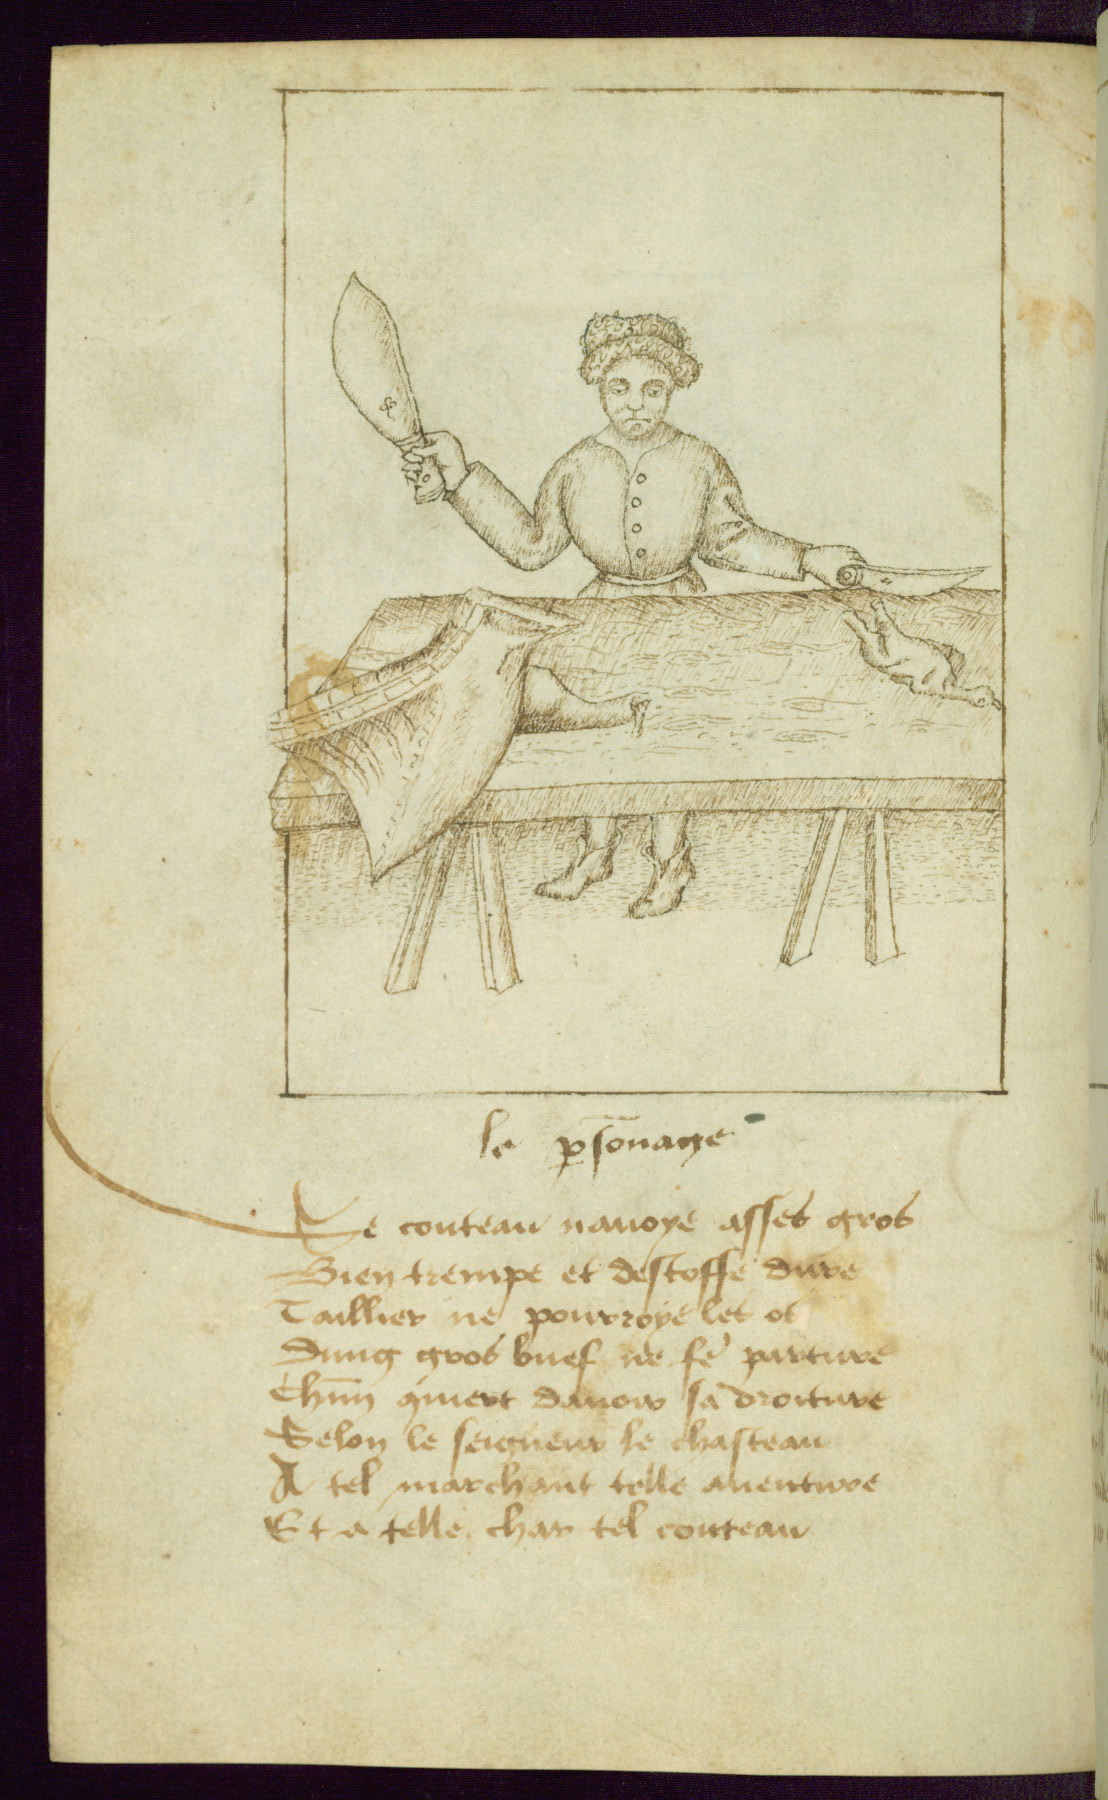 le p̱sonage
Se couteau nauoye asses gros
Bien trempe et destoffe dure
Taillier ne pourroye les os
Dung gros buef ne fe᷑ parture
Chūn quiert dauoir sa droiture
Selon le seigneur le chasteau
A tel marchant telle auenture
Et a telle char tel couteau